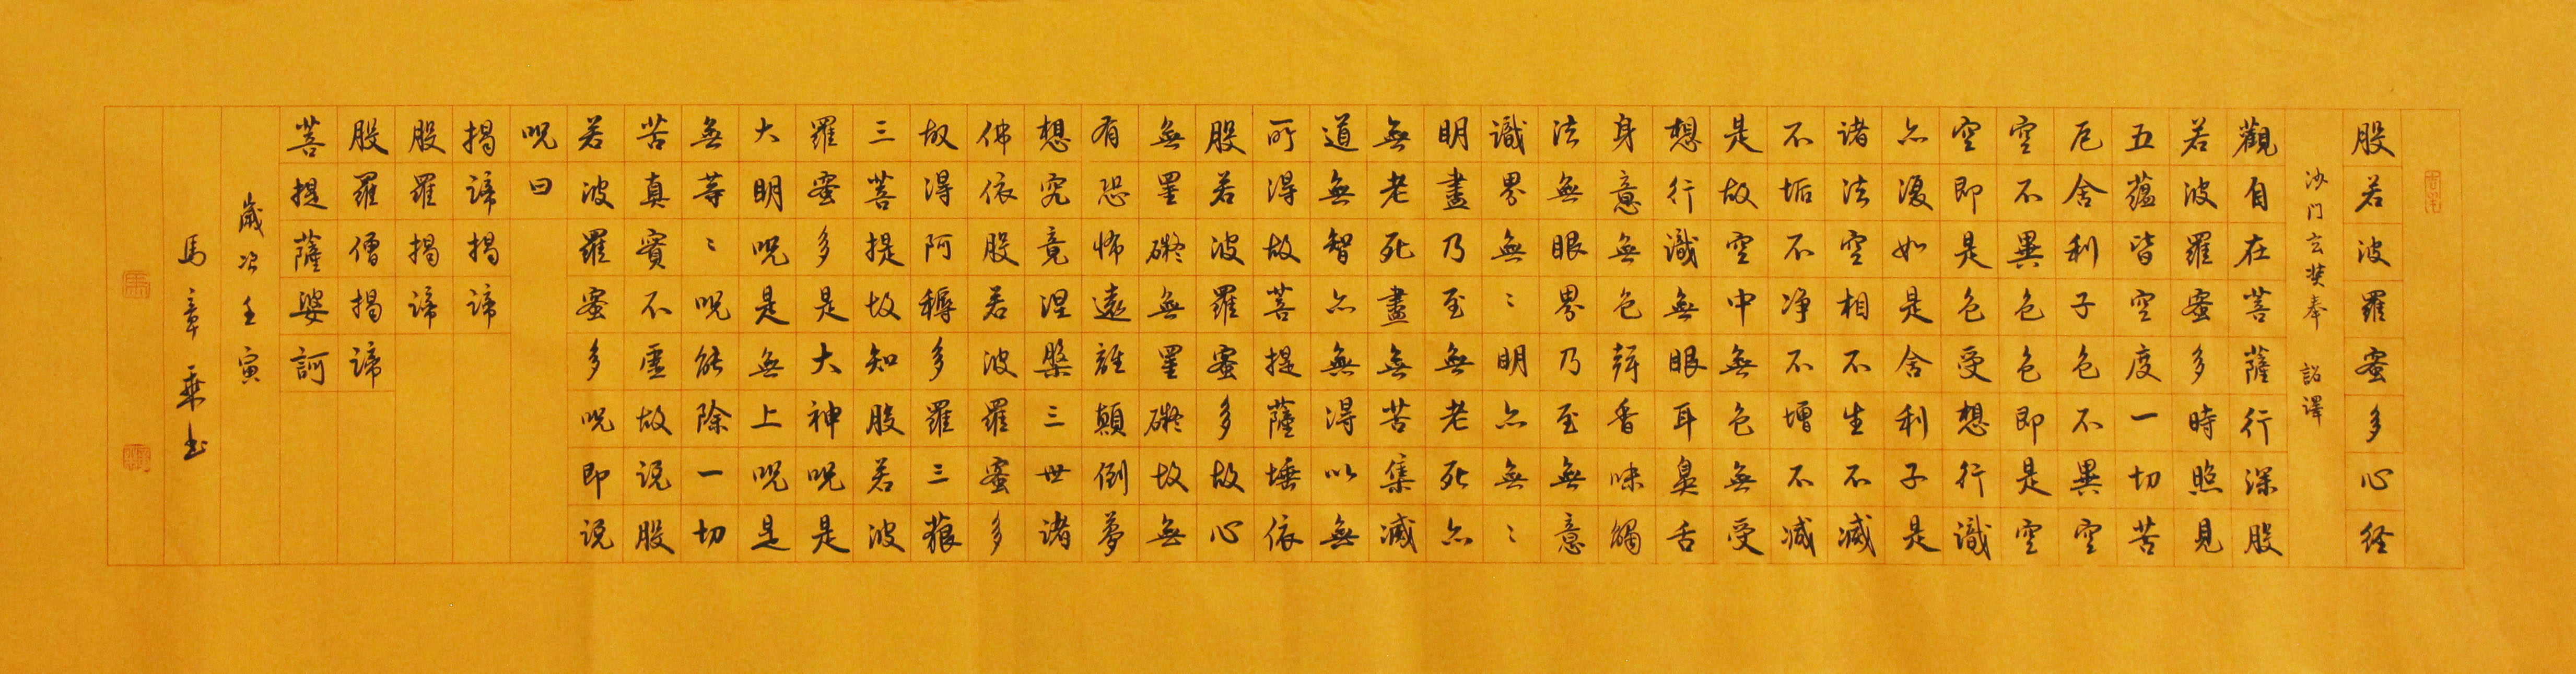 般若波羅蜜多心经
沙门玄奘奉 詔譯
觀自在菩薩行深般
若波羅蜜多時照見
五蘊皆空度一切苦
厄舍利子色不異空
空不異色色即是空
空即是色受想行識
亦復如是舍利子是
諸法空相不生不滅
不垢不净不增不減
是故空中無色無受
想行識無眼耳鼻舌
身意無色聲香味觸
法無眼界乃至無意
識界無〻明亦無〻
明盡乃至無老死亦
無老死盡無苦集滅
道無智亦無得以無
所得故菩提薩埵依
般若波羅蜜多故心
無罣礙無罣礙故無
有恐怖遠離顛倒夢
想究竟涅槃三世諸
佛依般若波羅蜜多
故得阿耨多羅三藐
三菩提故知般若波
羅蜜多是大神呪是
大明呪是無上呪是
無等〻呪能除一切
苦真實不虛故说般
若波羅蜜多呪即说
呪曰
揭諦揭諦
般羅揭諦
般羅僧揭諦
菩提薩婆訶
歲次壬寅
馬章乘书